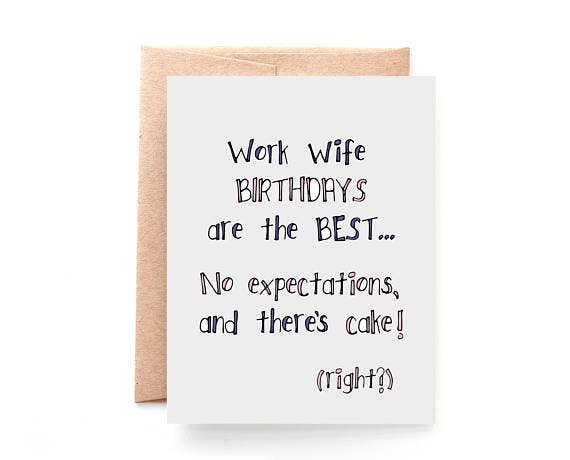 Work Wife
BIRTHDAYS
are the BEST...
No expectations,
and there's cake!
(right?)